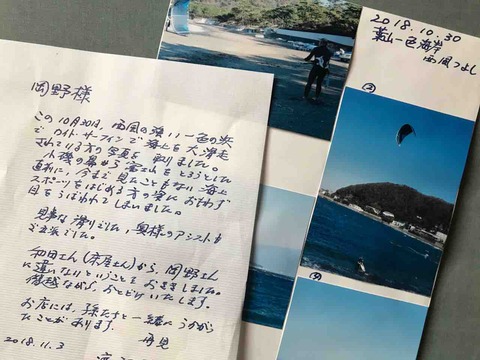 岡野様
この10月30日、西風の強い一色の浜
でカイトサーフィンで海上を大滑走
されている方の写真を取りました。
小磯の鼻から富士山をとろうとした
直前に、今まで見たこともない海上
スポーツをはじめる方の姿に、おもわず
目をうばわれてしまいました。
見事な滑りでした。奥様のアシストも
ご立派でした。
和田さん(床屋さん)から、岡野さん
に違いないということをお聞きしました。
僭越ながら、おとどけいたします。
お店には、孫たちと一緒にうかがっ
たことがあります。
再見
2018.11.3
2018.10.30
葉山一色海岸
西風つよし
②